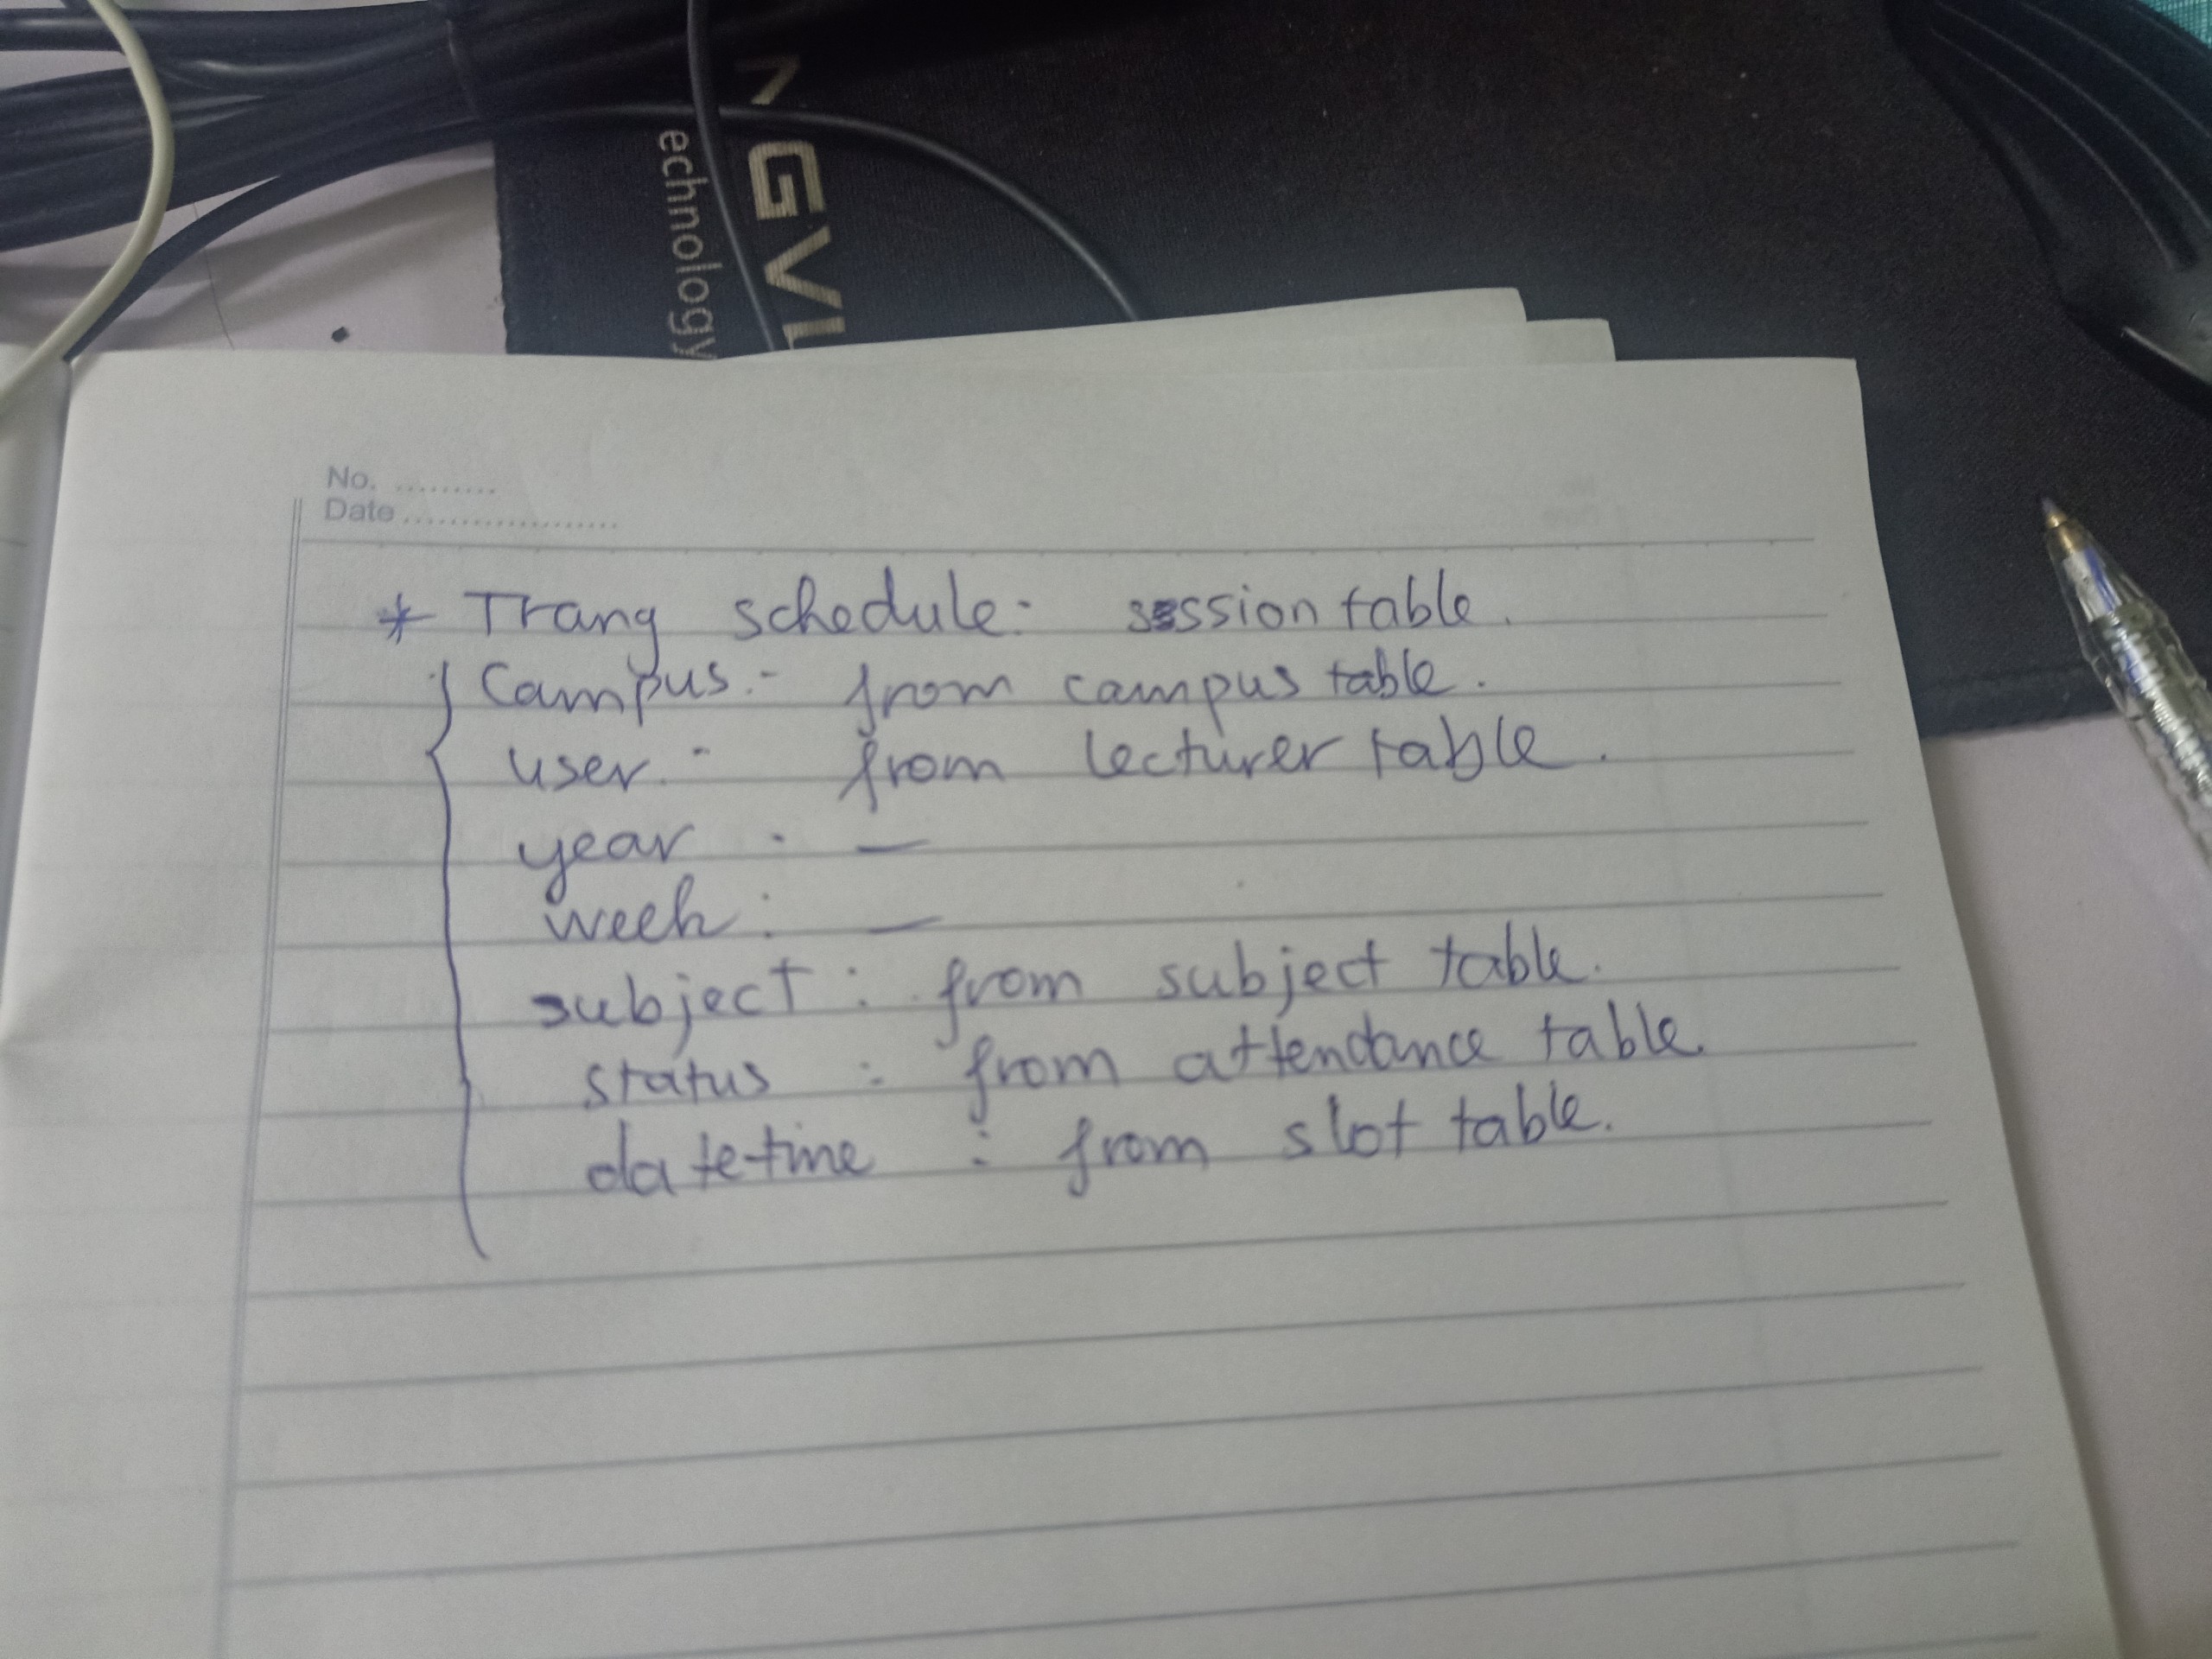 NGVI
echnology
No. .........
Date ....................
* Trang schedule: session table.
Campus: from campus table.
user: from lecturer table.
year : —
week : —
subject : from subject table.
status : from attendance table.
datetime : from slot table.